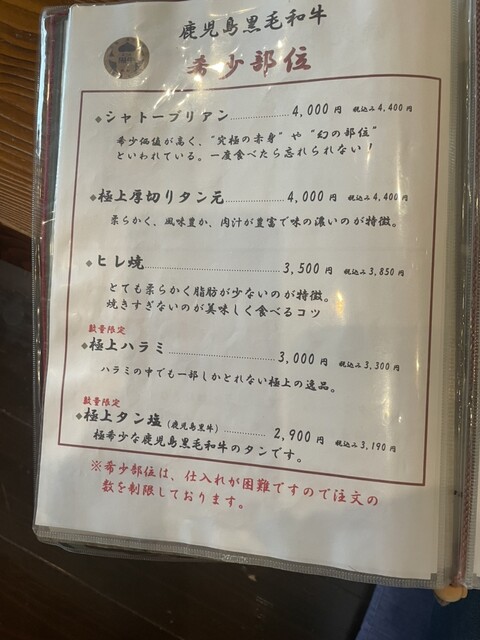 鹿児島黒毛和牛
希少部位
◆シャトーブリアン 4,000円 税込み4,400円
希少価値が高く、"究極の赤身"や"幻の部位"
といわれている。一度食べたら忘れられない！
◆極上厚切りタン元 4,000円 税込み4,400円
柔らかく、風味豊か、肉汁が豊富で味の濃いのが特徴。
◆ヒレ焼 3,500円 税込み3,850円
とても柔らかく脂肪が少ないのが特徴。
焼きすぎないのが美味しく食べるコツ
数量限定
◆極上ハラミ 3,000円 税込み3,300円
ハラミの中でも一部しかとれない極上の逸品。
数量限定
◆極上タン塩(鹿児島黒牛) 2,900円 税込み3,190円
極希少な鹿児島黒毛和牛のタンです。
※希少部位は、仕入れが困難ですので注文の
数を制限しております。